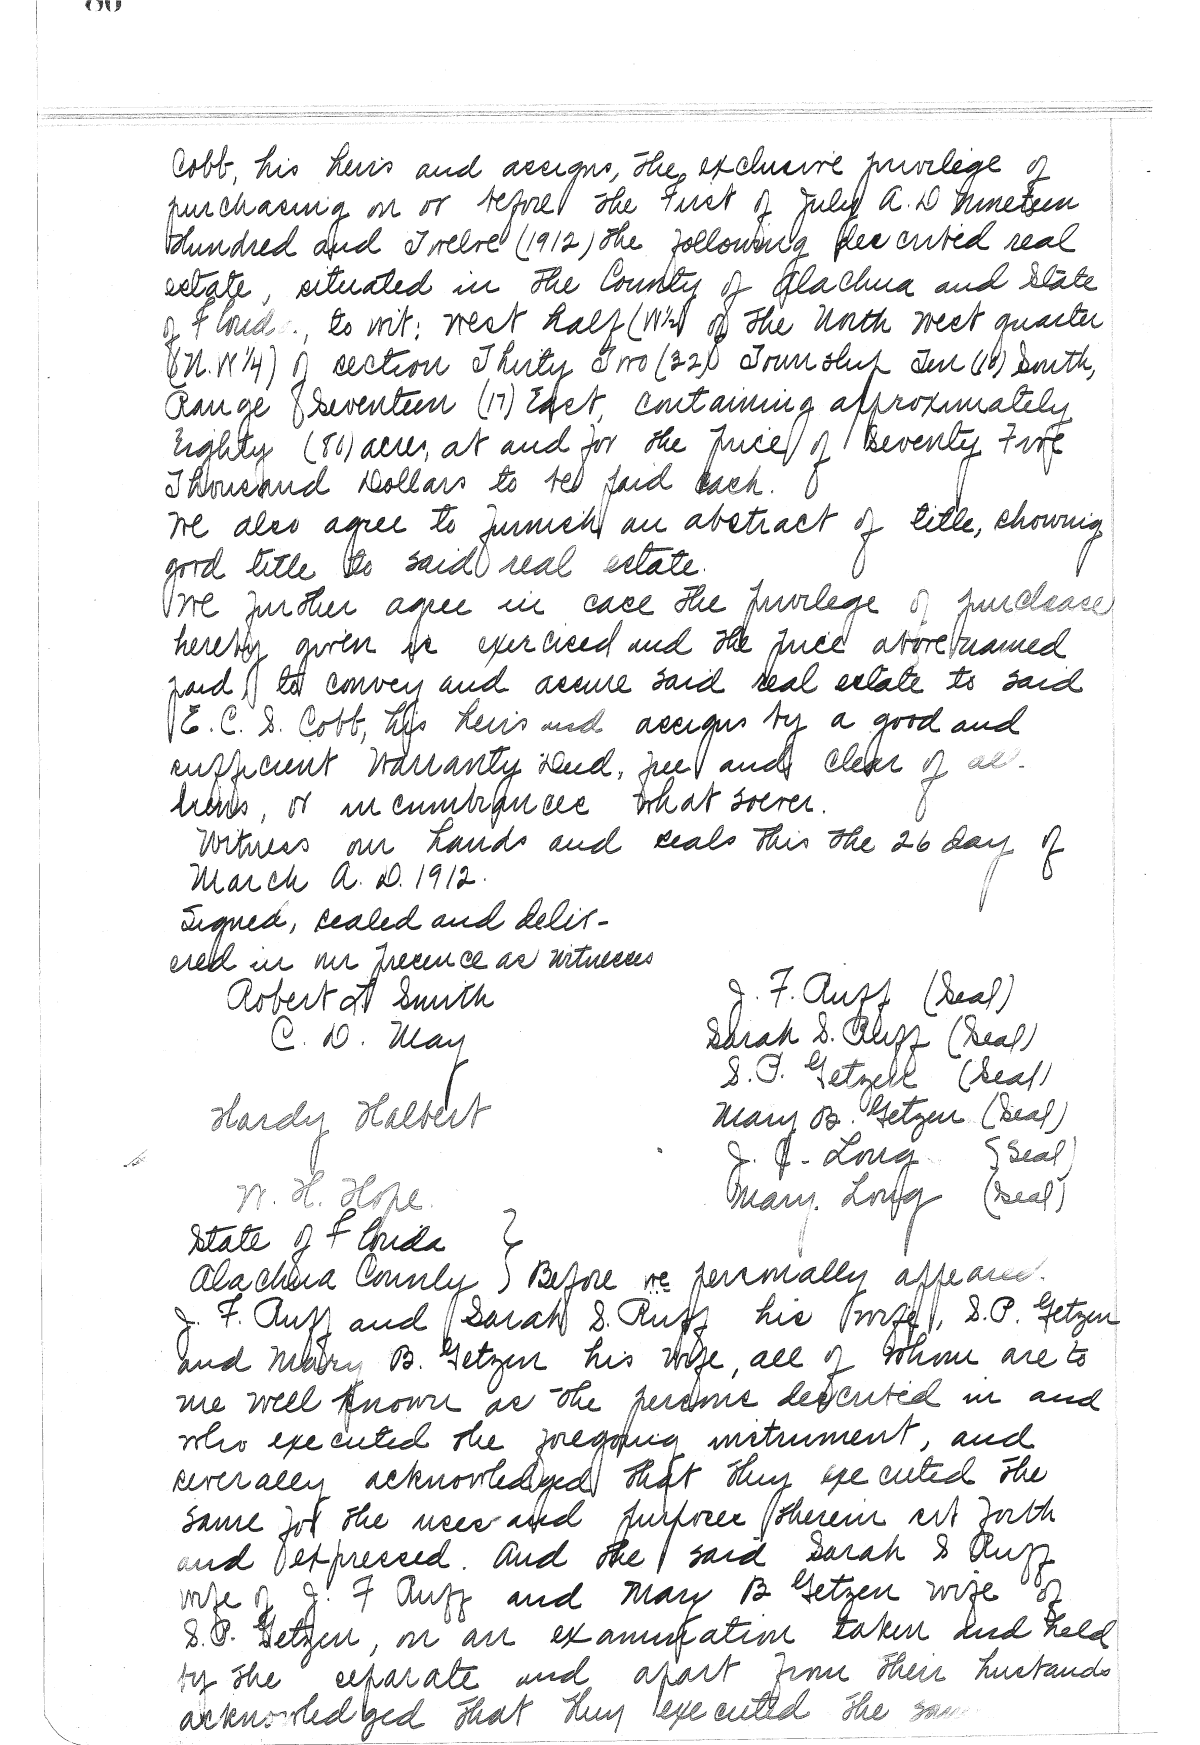 Cobb, his heirs and assigns, the exclusive privilege of
purchasing on or before the First of July A.D Nineteen
Hundred and Twelve (1912) the following described real
estate, situated in the County of Alachua and State
of Florida, to wit: West half (W½) of the North West quarter
(N.W¼) of section Thirty Two (32) Township Ten (10) South,
Range Seventeen (17) East, containing approximately
Eighty (80) acres, at and for the price of Seventy Five
Thousand Dollars to be paid cash.
We also agree to furnish an abstract of title, showing
good title to said real estate.
We further agree in case the privilege of purchase
hereby given is exercised and the price above named
paid, to convey and assure said real estate to said
E. C. S. Cobb, his heirs and assigns by a good and
sufficient Warranty Deed, free and clear of all
liens, or incumbrances what soever.
Witness our hands and seals this the 26 day of
March A. D. 1912.
Signed, sealed and deliv-
ered in our presence as witnesses
Robert Smith
C. D. May
Hardy Halbert
W. H. Hope.
J. F. Ruff (Seal)
Sarah S. Ruff (Seal)
S. P. Getzen (Seal)
Mary B. Getzen (Seal)
J. Long (Seal)
Mary. Long (Seal)
State of Florida }
Alachua County } Before me personally appeared
J. F. Ruff and Sarah S. Ruff his wife, S.P. Getzen
and Mary B. Getzen his wife, all of whom are to
me well known as the persons described in and
who executed the foregoing instrument, and
severally acknowledged that they executed the
same for the uses and purposes therein set forth
and expressed. And the said Sarah S Ruff
wife of J. F Ruff and Mary B Getzen wife of
S.P. Getzen, on an examination taken and held
by the separate and apart from their husbands
acknowledged that they executed the same